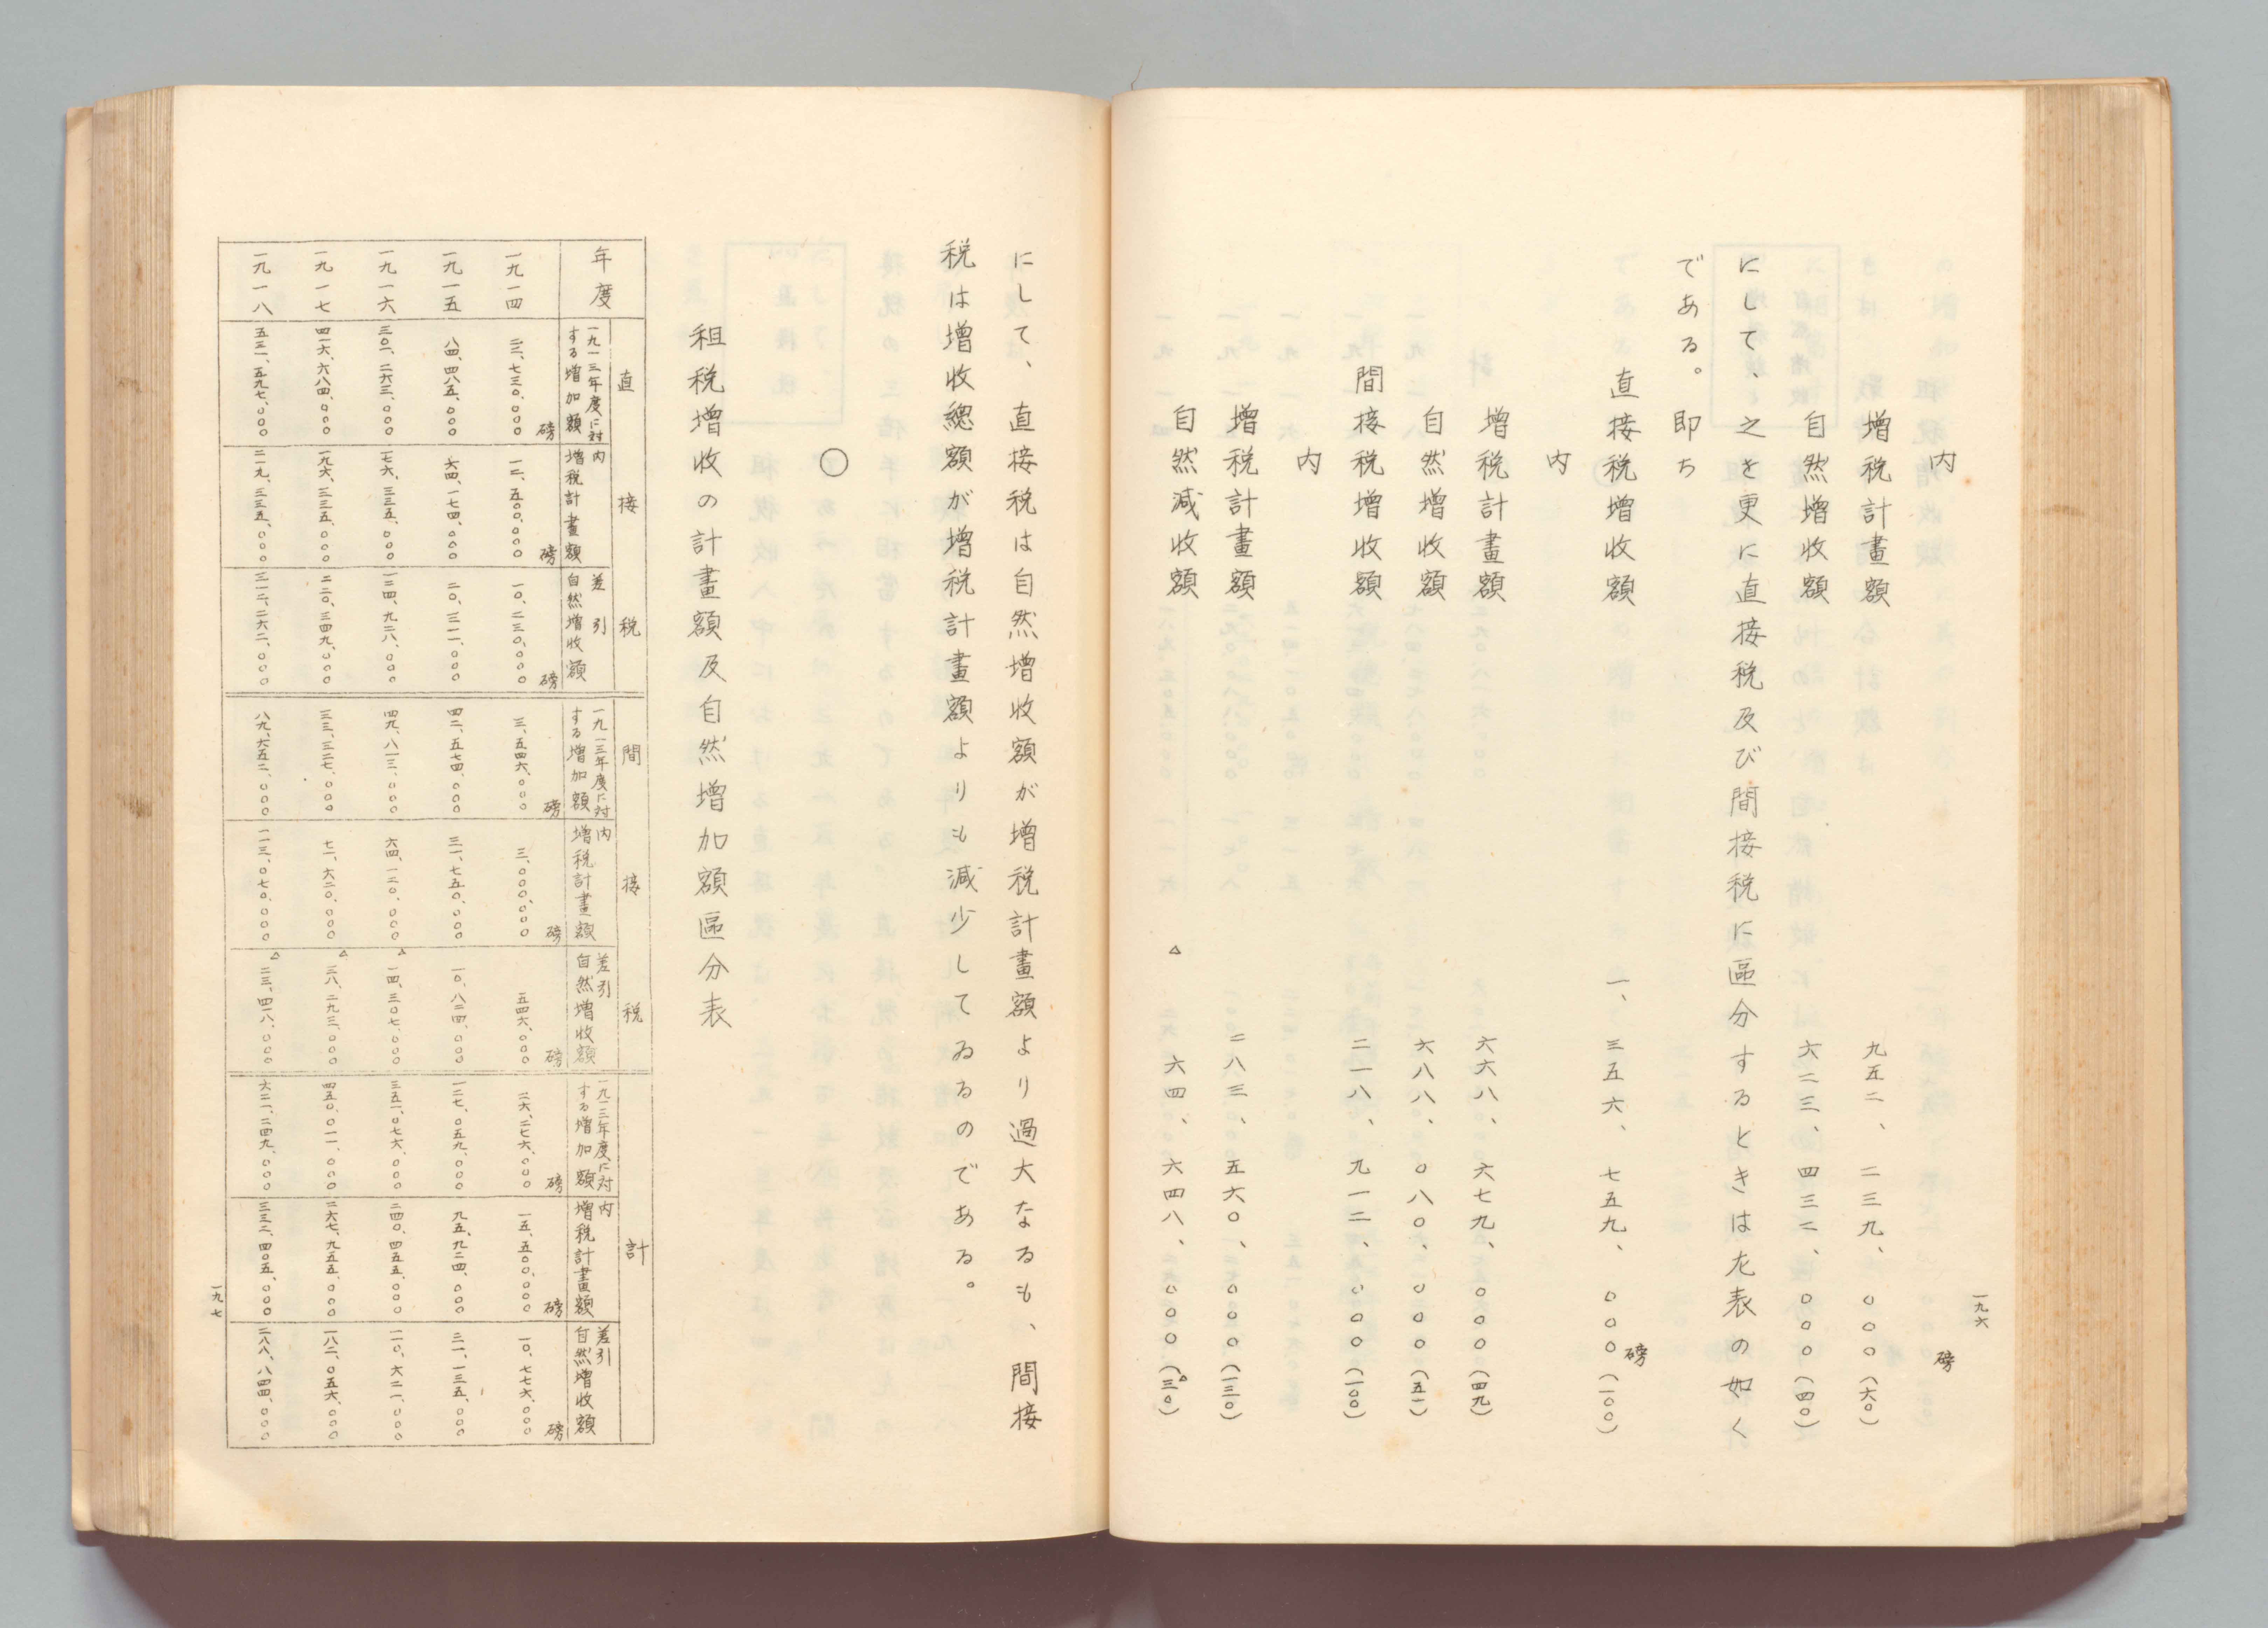 一九六
内　磅
增税計畫額　九五二、二三九、〇〇〇（六〇）
自然增收額　六二三、四三二、〇〇〇（四〇）
にして、之を更に直接税及び間接税に區分するときは左表の如く
である。即ち
直接税增收額　一、三五六、七五九、〇〇〇磅（一〇〇）
内
增税計畫額　六六八、六七九、〇〇〇（四九）
自然增收額　六八八、〇八〇、〇〇〇（五一）
間接税增收額　二一八、九一二、〇〇〇（一〇〇）
内
增税計畫額　二八三、五六〇、〇〇〇（一三〇）
自然減收額　△六四、六四八、〇〇〇（△三〇）
にして、直接税は自然增收額が增税計畫額より過大なるも、間接
税は增收總額が增税計畫額よりも減少してゐるのである。
〇
租税增收の計畫額及自然增加額區分表
直接税　間接税　計
年度　一九一三年度に対する增加額　内增税計畫額　差引自然增收額　一九一三年度に対する增加額　内增税計畫額　差引自然增收額　一九一三年度に対する增加額　内增税計畫額　差引自然增收額
磅　磅　磅　磅　磅　磅　磅　磅　磅
一九一四　二二、七三〇、〇〇〇　一二、五〇〇、〇〇〇　一〇、二三〇、〇〇〇　三、五四六、〇〇〇　三、〇〇〇、〇〇〇　五四六、〇〇〇　二六、二七六、〇〇〇　一五、五〇〇、〇〇〇　一〇、七七六、〇〇〇
一九一五　八四、四八五、〇〇〇　六四、一七四、〇〇〇　二〇、三一一、〇〇〇　四二、五七四、〇〇〇　三一、七五〇、〇〇〇　一〇、八二四、〇〇〇　一二七、〇五九、〇〇〇　九五、九二四、〇〇〇　三一、一三五、〇〇〇
一九一六　三〇一、二六三、〇〇〇　一七六、三三五、〇〇〇　一二四、九二八、〇〇〇　四九、八一三、〇〇〇　六四、一二〇、〇〇〇　△一四、三〇七、〇〇〇　三五一、〇七六、〇〇〇　二四〇、四五五、〇〇〇　一一〇、六二一、〇〇〇
一九一七　四一六、六八四、〇〇〇　一九六、三三五、〇〇〇　二二〇、三四九、〇〇〇　三三、三二七、〇〇〇　七一、六二〇、〇〇〇　△三八、二九三、〇〇〇　四五〇、〇一一、〇〇〇　二六七、九五五、〇〇〇　一八二、〇五六、〇〇〇
一九一八　五三一、五九七、〇〇〇　二一九、三三五、〇〇〇　三一二、二六二、〇〇〇　八九、六五二、〇〇〇　一一三、〇七〇、〇〇〇　△二三、四一八、〇〇〇　六二一、二四九、〇〇〇　三三二、四〇五、〇〇〇　二八八、八四四、〇〇〇
一九七